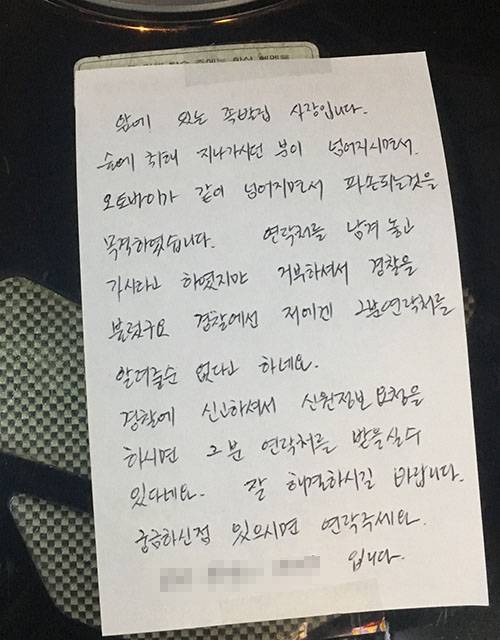 앞에 있는 족발집 사장입니다.
술에 취해 지나가시던 분이 넘어지시면서.
오토바이가 같이 넘어지면서 파손되는것을
목격하였습니다. 연락처를 남겨 놓고
가시라고 하였지만 거부하셔서 경찰을
불렀구요 경찰에선 저에겐 그분연락처를
알려줄순 없다고 하네요.
경찰에 신고하셔서 신원정보 요청을
하시면 그분 연락처를 받을실수
있다네요. 잘 해결하시길 바랍니다.
궁금하신점 있으시면 연락주세요.
입니다.